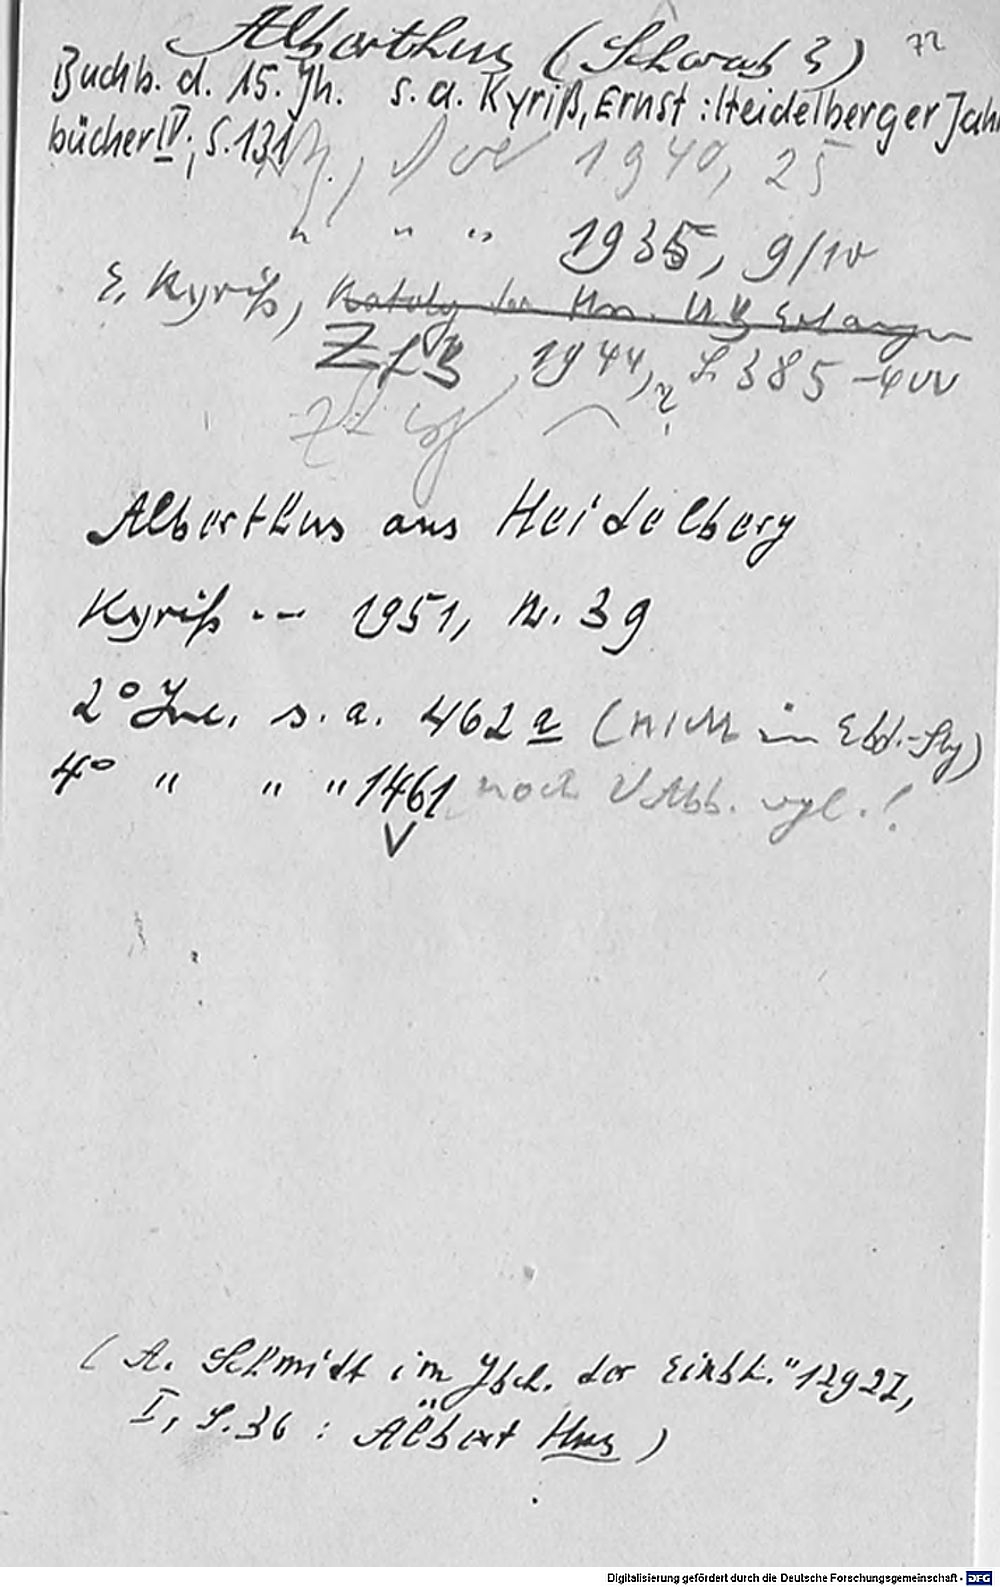 Alberthus (Schwab 3) 72
Buchb. d. 15. Jh. s. a. Kyriß, Ernst: Heidelberger Jahr
bücher IV; S. 131
1940, 25
" " " 1935, 9/10
E. Kyriß, Katalog der Hss. UB Erlangen
ZfB 1944, S. 385-400
Alberthus aus Heidelberg
Kyriß -- 1951, Nr. 39
2° Inc. s. a. 462 a (nicht in Ebd.-Slg)
4° " " " 1461 noch Abb. vgl.!
V
(A. Schmidt im Jbch. der Einbk." 1927,
I, S. 36 : Albert Hus)
Digitalisierung gefördert durch die Deutsche Forschungsgemeinschaft - DFG